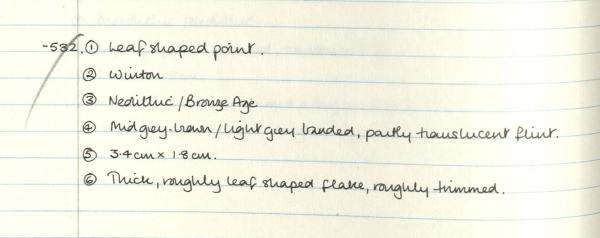 -532. ① Leaf shaped point.
② Winton
③ Neolithic / Bronze Age
④ Mid grey-brown / light grey banded, partly translucent flint.
⑤ 3.4cm × 1.8cm.
⑥ Thick, roughly leaf shaped flake, roughly trimmed.